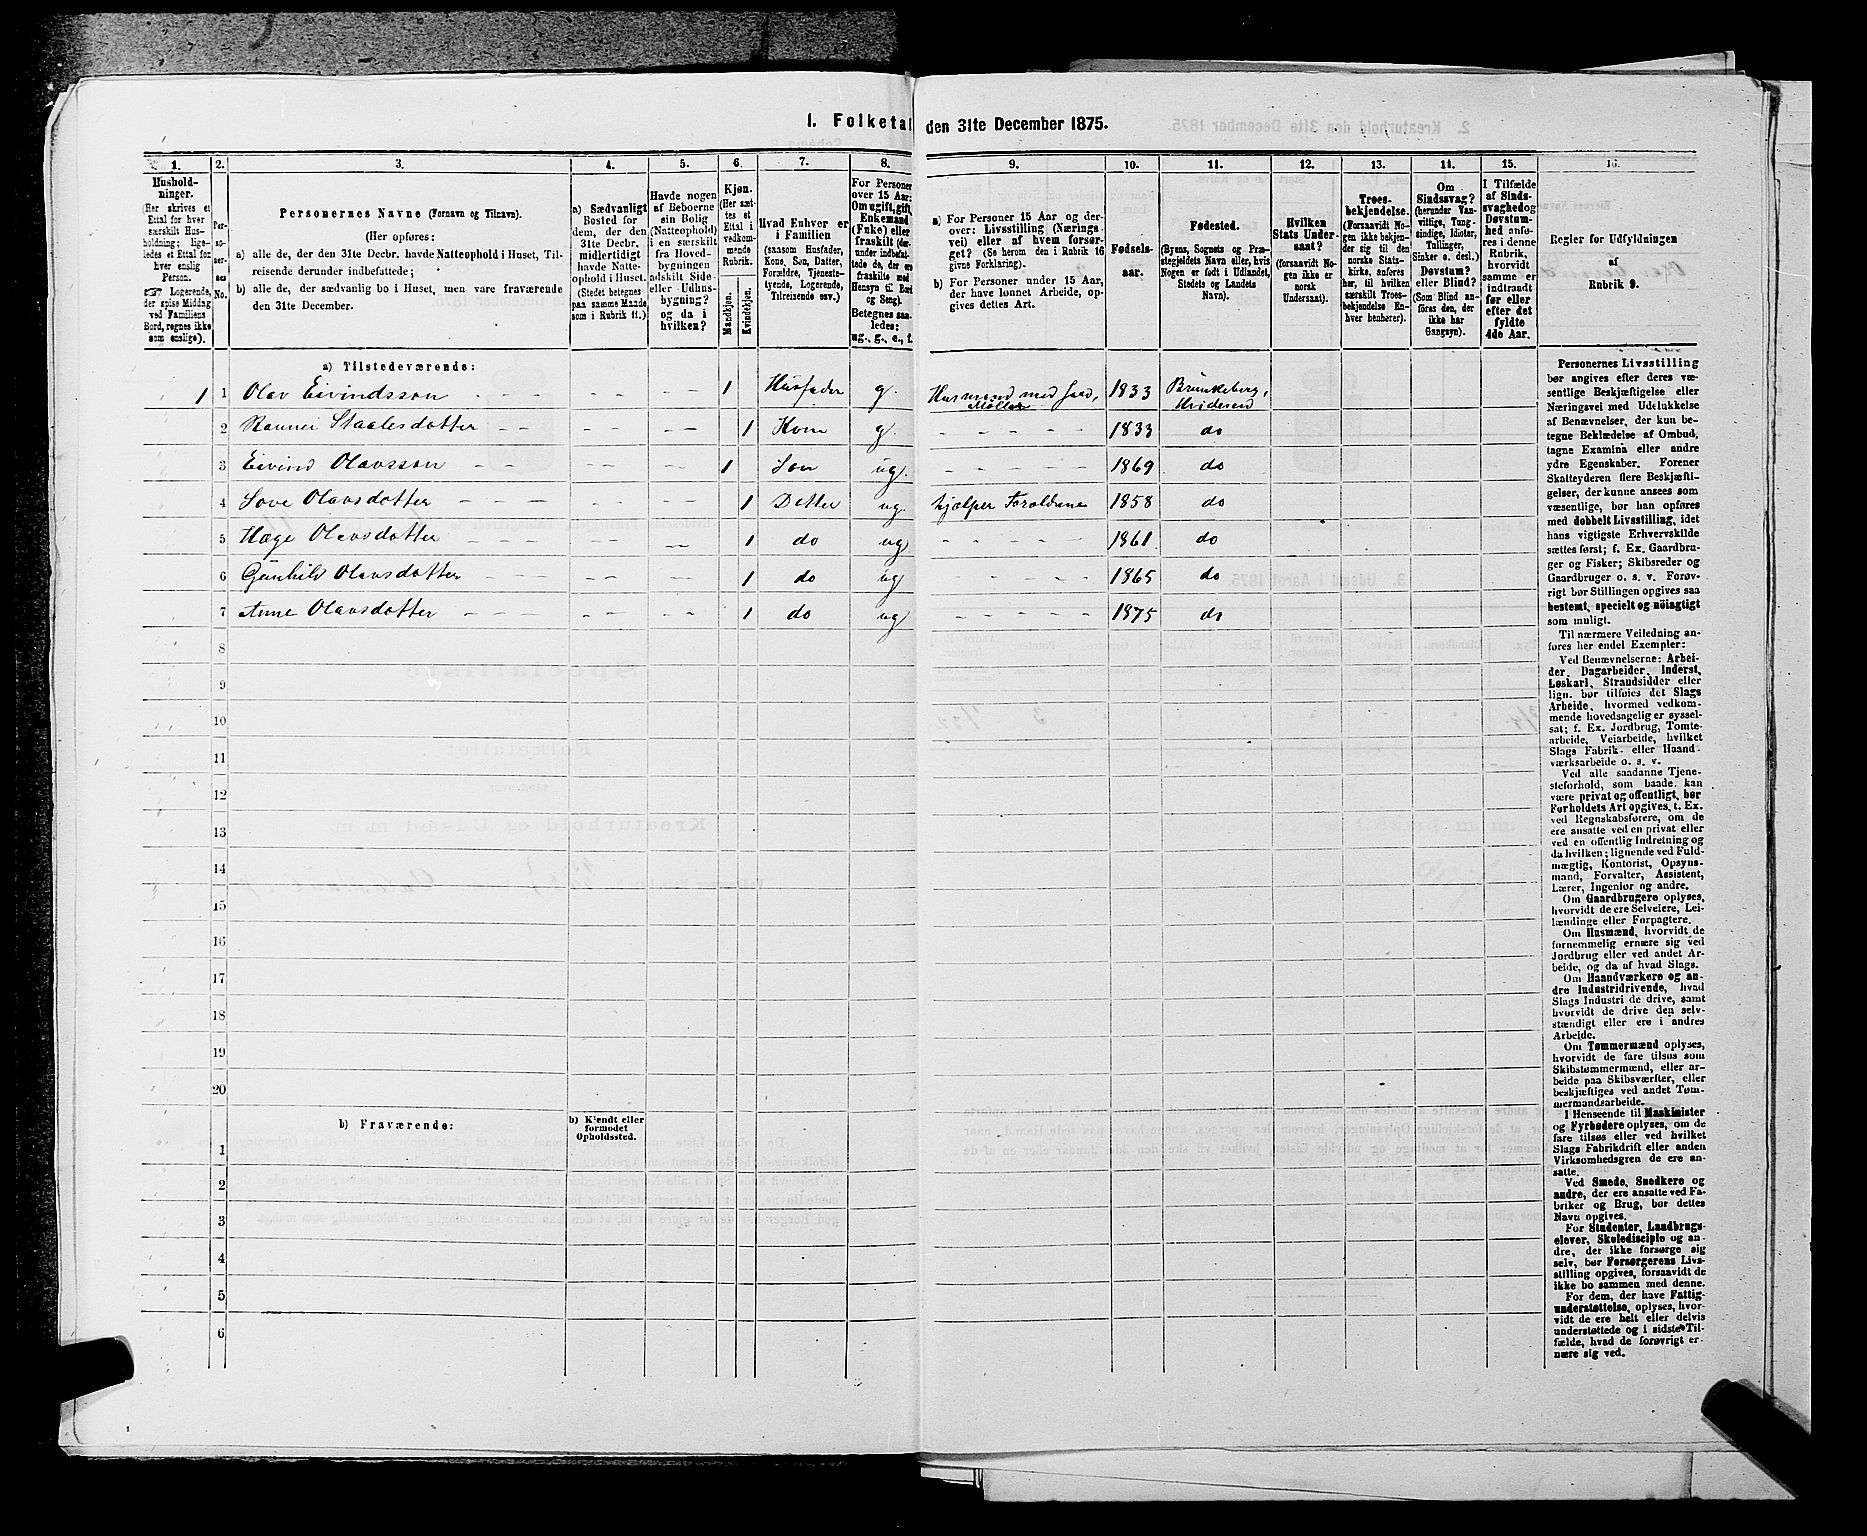 1. Folketal den 31te December 1875.
1. 2. 3. 4. 5. 6. 7. 8. 9. 10. 11. 12. 13. 14. 15. 16.
Hushold-
ninger.
(Her skrives et
Ettal for hver
særskilt Hus-
holdning; lige-
ledes et Ettal for
hver enslig
Person.
☞ Logerende,
der spise Middag
ved Familiens
Bord, regnes ikke
som enslige).
Per-
so-
ner-
nes
No.
Personernes Navne (Fornavn og Tilnavn).
(Her opføres:
a) alle de, der den 31te Decbr. havde Natteophold i Huset, Til-
reisende derunder indbefattede;
b) alle de, der sædvanlig bo i Huset, men vare fraværende
den 31te December.
a) Sædvanligt
Bosted for
dem, der den
31te Decbr.
midlertidigt
havde Natte-
ophold i Huset.
(Stedet betegnes
paa samme Maade
som i Rubrik 11.)
Havde nogen
af Beboerne
sin Bolig
(Natteophold)
i en særskilt
fra Hoved-
bygningen
adskilt Side
eller Udhus-
bygning?
og da i
hvilken?
Kjøn.
(Her sæt-
tes et
Ettal i
vedkom-
mende
Rubrik.
Mandkjøn.
Kvindekjøn.
Hvad Enhver er
i Familien
(saasom Husfader,
Kone, Søn, Datter,
Forældre, Tjeneste-
tyende, Logerende,
Tilreisende osv.)
For Personer
over 15 Aar:
Om ugift, gift,
Enkemand
(Enke) eller
fraskilt (der-
under indbefat-
tede de, der ere
fraskilte med
Hensyn til Bord
og Seng).
Betegnes saa-
ledes:
ug., g., e., f.
a) For Personer 15 Aar og der-
over: Livsstilling (Nærings-
vei) eller af hvem forsør-
get? (Se herom den i Rubrik 16
givne Forklaring).
b) For Personer under 15 Aar,
der have lønnet Arbeide, op-
gives dettes Art.
Fødsels-
aar.
Fødested.
(Byens, Sognets og Præ-
stegjeldets Navn eller, hvis
Nogen er født i Udlandet,
Stedets og Landets
Navn).
Hvilken
Stats Under-
saat?
(forsaavidt No-
gen ikke er
norsk
Undersaat).
Troes-
bekjendelse.
(Forsaavidt No-
gen ikke bekjen-
der sig til den
norske Stats-
kirke, anføres
her, til hvilken
særskilt Troes-
bekjendelse En-
hver henhører).
Om
Sindssvag?
(herunder Van-
vittige, Tung-
sindige, Idioter,
Tullinger,
Sinker o. desl.)
Døvstum?
eller Blind?
(Som Blind an-
føres den, der
ikke har
Gangsyn).
I Tilfælde
af Sinds-
svaghed og
Døvstum-
hed anfø-
res i denne
Rubrik,
hvorvidt
samme er
indtraadt
før eller
efter det
fyldte
4de Aar.
Regler for Udfyldningen
af
Rubrik 9.
a) Tilstedeværende:
1 1 Olav Eivindsson - - - - 1 Husfader g. Husmand med Jord, Møller 1833 Brunkeberg, Hvideseid
2 - - - 1 Kone g. - - - - - 1833 do
3 Eivind Olavsson - - - - - 1 Søn ug. - - - - - 1869 do
4 Olavsdotter - - - - - - 1 Datter ug. hjælper Forældrene 1858 do
5 Hæge Olavsdotter - - - - - - 1 do ug - - - - - 1861 do
6 Gunhild Olavsdotter - - - - - - 1 do ug - - - - - 1865 do
7 Anne Olavsdotter - - - - - 1 do ug - - - - - 1875 do
8
9
10
11
12
13
14
15
16
17
18
19
20
b) Fraværende:
b) Kjendt eller
formodet
Opholdssted.
1
2
3
4
5
6
Personernes Livsstilling
bør angives efter deres væ-
sentlige Beskjæftigelse eller
Næringsvei med Udelukkelse
af Benævnelser, der kun be-
tegne Beklædelse af Ombud,
tagne Examina eller andre
ydre Egenskaber. Forener
Skatteyderen flere Beskjæfti-
gelser, der kunne ansees som
væsentlige, bør han opføres
med dobbelt Livsstilling, idet
hans vigtigste Erhvervskilde
sættes først; f. Ex. Gaardbru-
ger og Fisker; Skibsreder og
Gaardbruger o. s. v. Forøv-
rigt bør Stillingen opgives saa
bestemt, specielt og nöiagtigt
som muligt.
Til nærmere Veiledning an-
føres her endel Exempler:
Ved Benævnelserne: Arbei-
der, Dagarbeider, Inderst,
Løskarl, Strandsidder eller
lign. bør tilføies det Slags
Arbeide, hvormed vedkom-
mende hovedsagelig er syssel-
sat; f. Ex. Jordbrug, Tomte-
arbeide, Veiarbeide, hvilket
Slags Fabrik- eller Haand-
værksarbeide o. s. v.
Ved alle saadanne Tjene-
steforhold, som baade kan
være privat og offentligt, bør
Forholdets Art opgives, t. Ex.
ved Regnskabsførere, om de
ere ansatte ved en privat eller
ved en offentlig Indretning og
da hvilken; lignende ved Fuld-
mægtig, Kontorist, Opsyns-
mand, Forvalter, Assistent,
Lærer, Ingeniør og andre.
Om Gaardbrugere oplyses,
hvorvidt de ere Selveiere, Lei-
lændinge eller Forpagtere.
Om Husmænd, hvorvidt de
fornemmelig ernære sig ved
Jordbrug eller ved andet Ar-
beide, og da af hvad Slags.
Om Haandværkere og an-
dre Industridrivende, hvad
Slags Industri de drive, samt
hvorvidt de drive den selv-
stændigt eller ere i andres
Arbeide.
Om Tømmermænd oplyses,
hvorvidt de fare tilsøs som
Skibstømmermænd, eller ar-
beide paa Skibsværfter, eller
beskjæftiges ved andet Tøm-
mermandsarbeide.
I Henseende til Maskinister
og Fyrbødere oplyses, om de
fare tilsøs eller ved hvilket
Slags Fabrikdrift eller anden
Virksomhedsgren de ere an-
satte.
Ved Smede, Snedkere og
andre, der ere ansatte ved Fa-
briker og Brug, bør dettes
Navn opgives.
For Studenter, Landbrugs-
elever, Skoledisciple og an-
dre, der ikke forsørge sig
selv, bør Forsørgerens Livs-
stilling opgives, forsaavidt de
ikke bo sammen med denne.
For dem, der have Fattig-
understøttelse, oplyses, hvor-
vidt de ere helt eller delvis
understøttede og i sidste Til-
fælde, hvad de forøvrigt er-
nære sig ved.